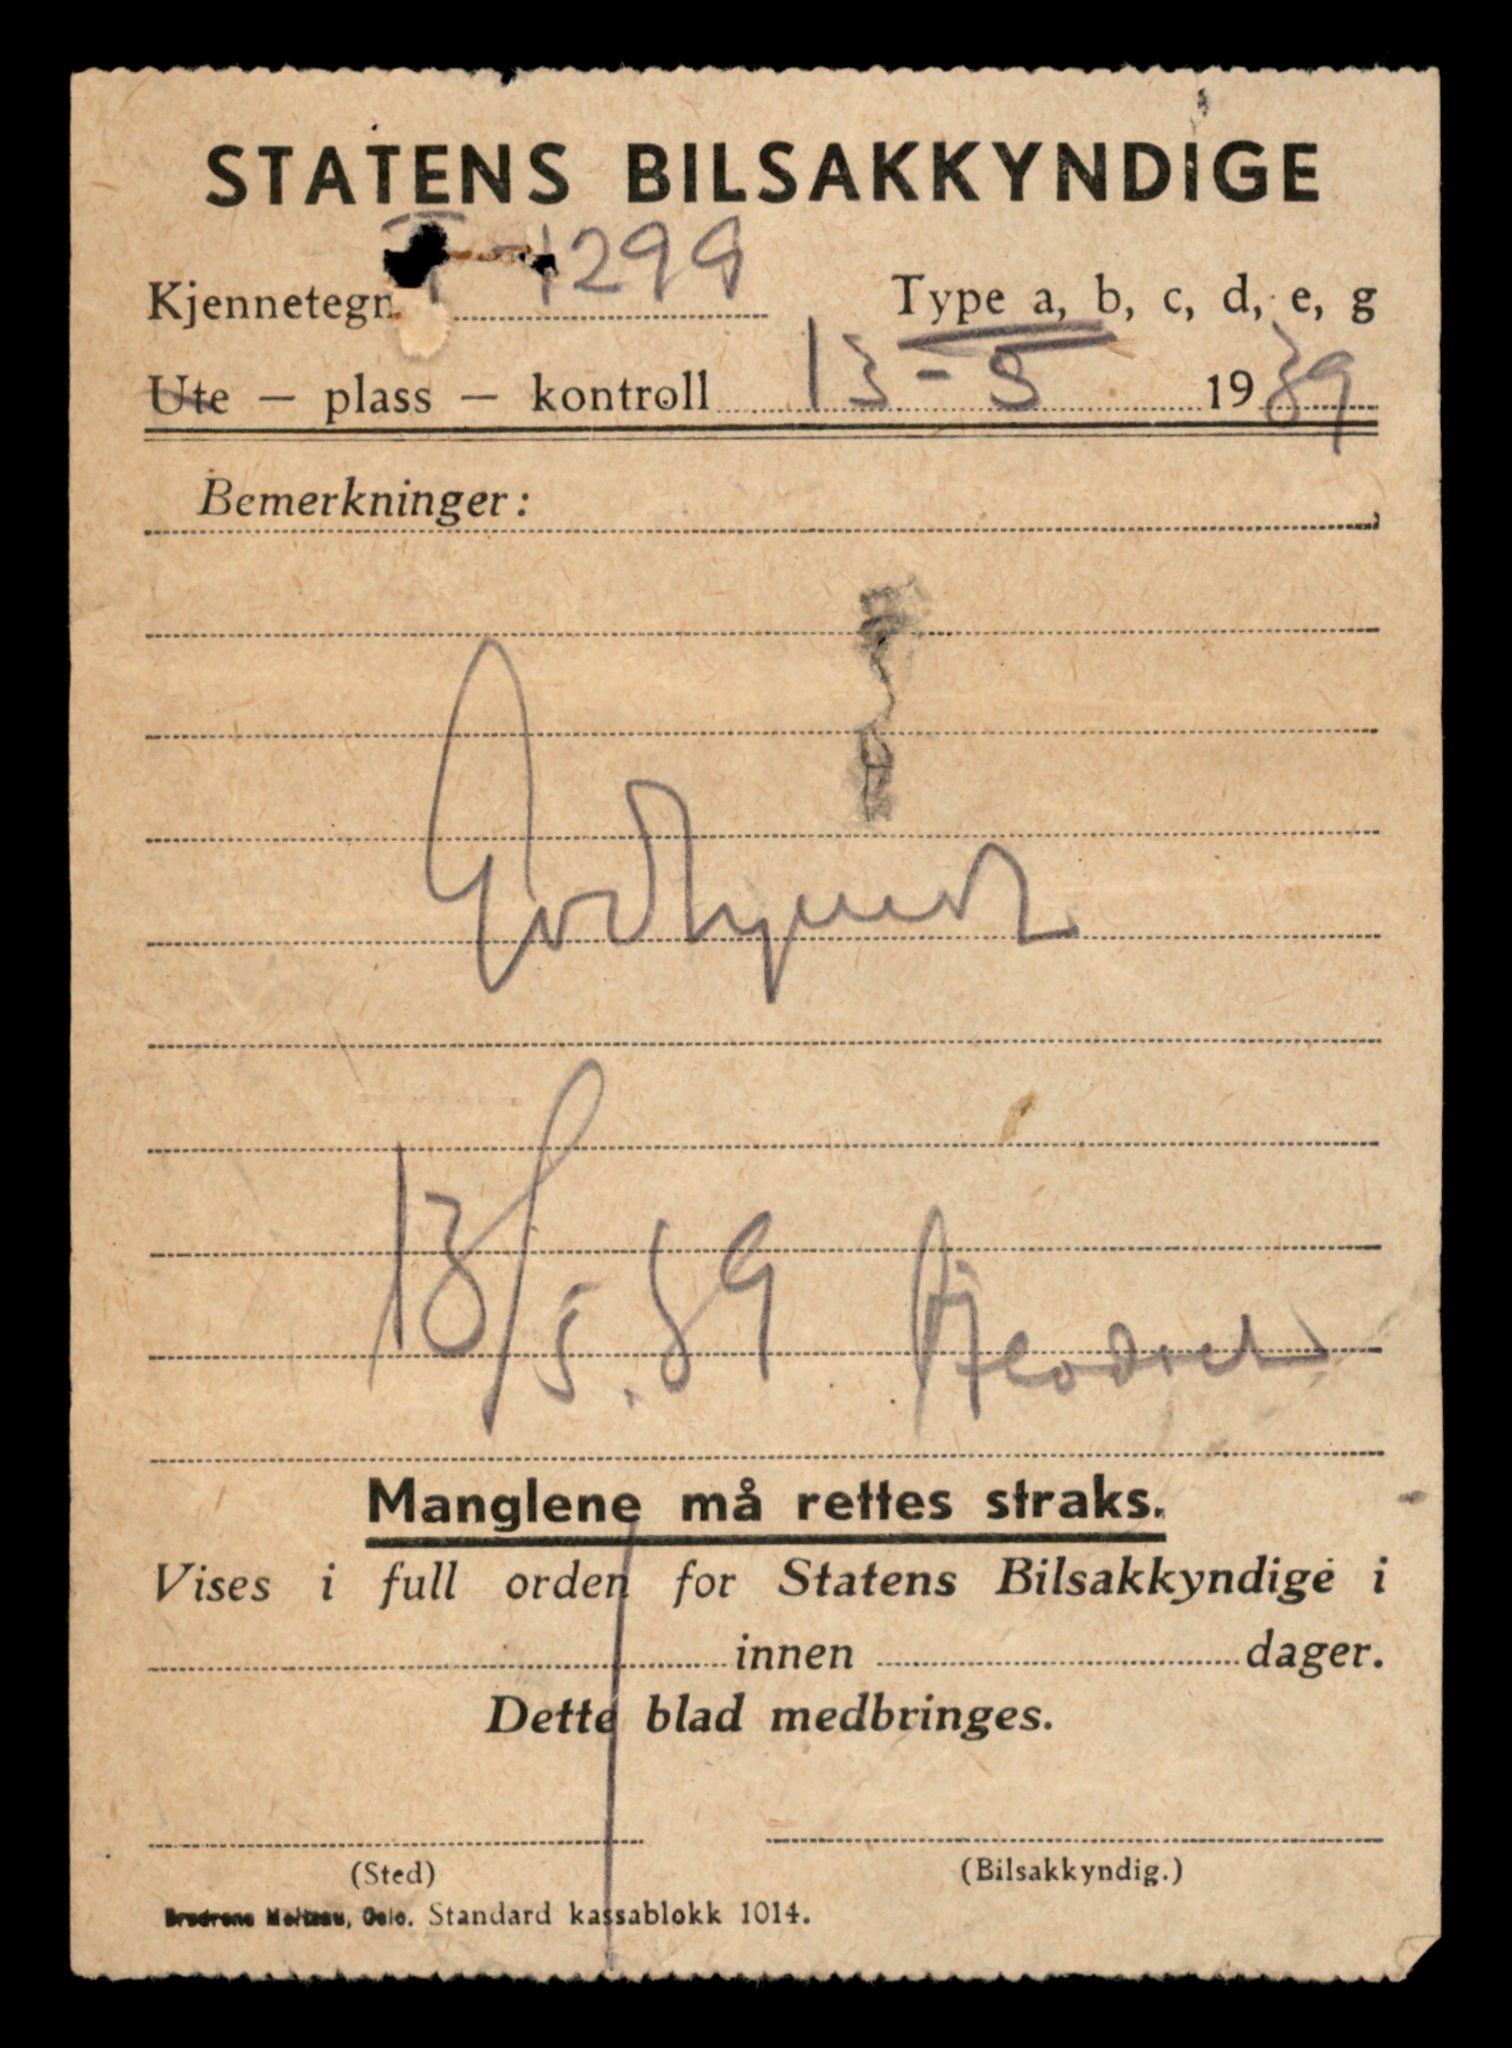 STATENS BILSAKKYNDIGE
Kjennetegn T-1299 Type a, b, c, d, e, g
Ute — plass — kontroll 13-5 1939
Bemerkninger:
Godkjent
13/5.39
Manglene må rettes straks.
Vises i full orden for Statens Bilsakkyndige i
innen dager.
Dette blad medbringes.
(Sted) (Bilsakkyndig.)
Oslo. Standard kassablokk 1014.